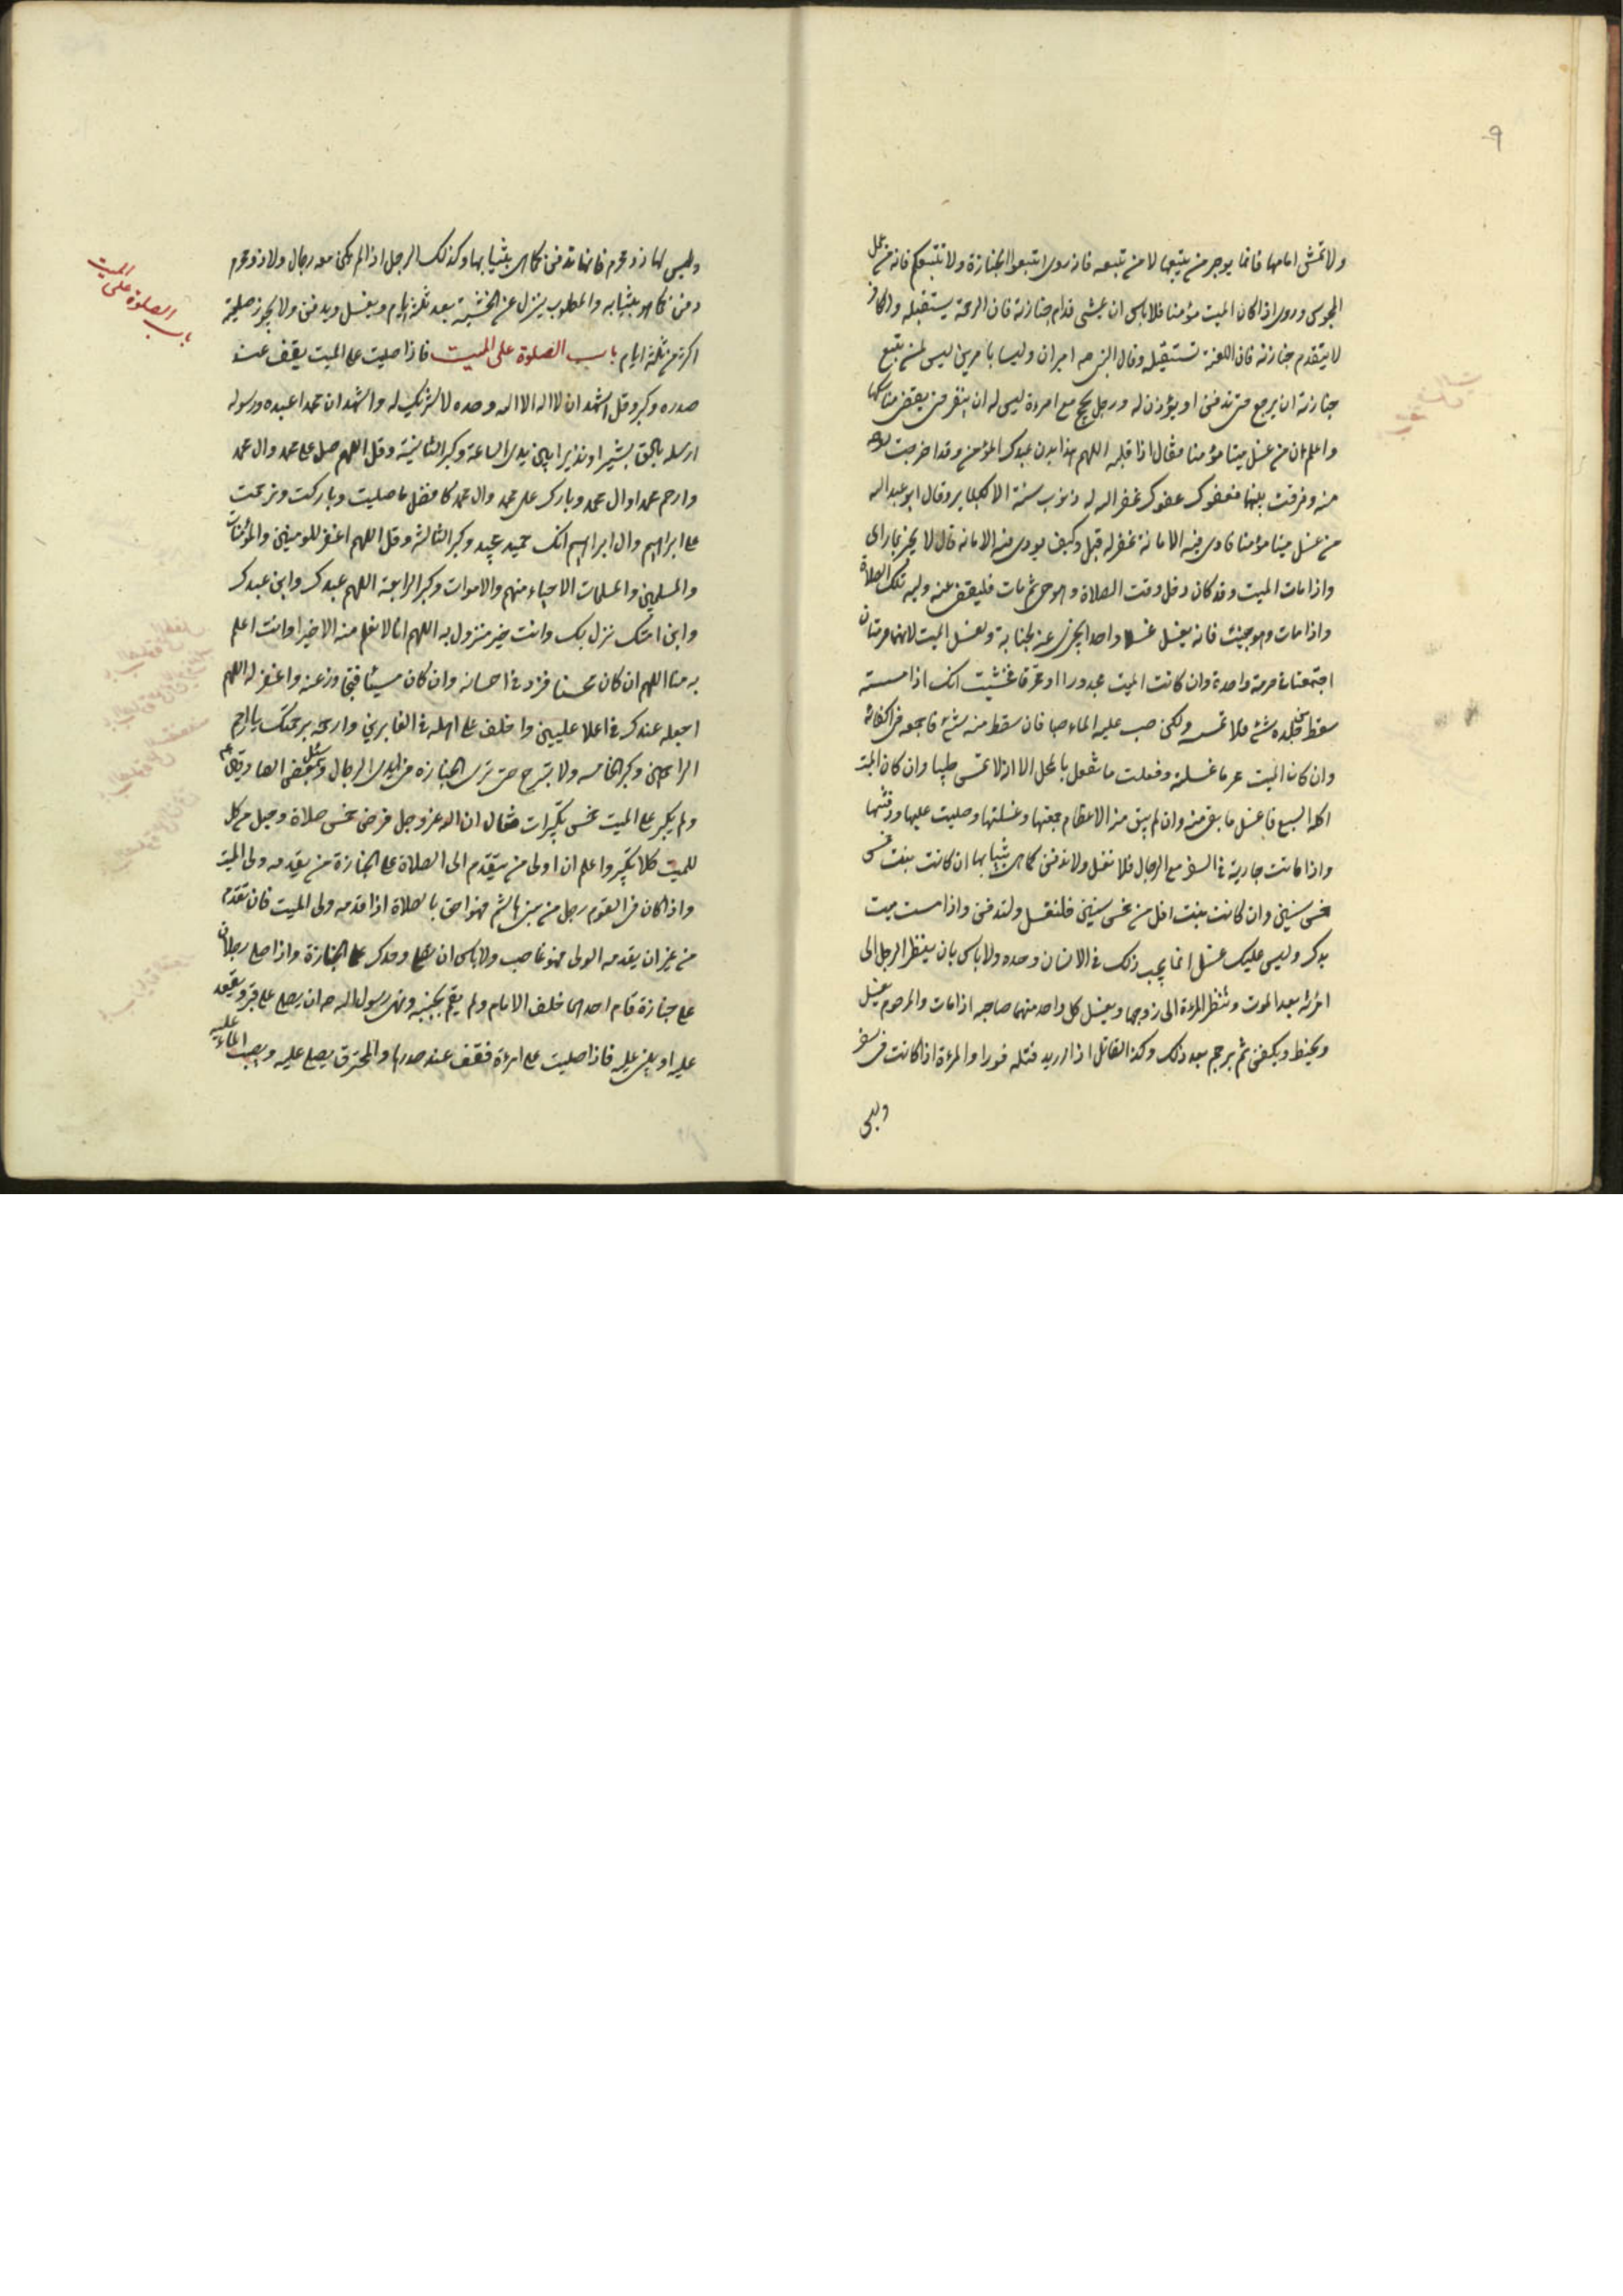 ٩
ولا تمش امامها فانما يوجر من يتبعها لا من تبعه فانه روى اتبعوا الجنازة ولا تتبعكم فانه من عمل
المجوس وروى اذا كان الميت مؤمنا فلا باس ان يمشى قدام جنازته فان الرحمة يستقبله والكافر
لا يتقدم جنازته فان اللعنة تستقبله وقال النبى صه اميران وليسا باميرين ليس لمن يتبع
جنازة ان يرجع حتى تدفن او يؤذن له ورجل يحج مع امرءة ليس له ان ينفر حتى يقضى مناسكها
واعلم ان من غسل ميتا مؤمنا فقال اذا قلبه اللهم هذا بدن عبدك المؤمن وقد اخرجت روحه
منه وفرقت بينهما فعفوك عفوك غفر الله له ذنوب سنة الا الكباير وقال ابو عبد الله
من غسل ميتا مؤمنا فادى فيه الامانة غفر له قيل وكيف يودى فيه الامانه قال لا يخبر بما راى
واذا مات الميت وقد كان دخل وقت الصلاة وهو حى ثم مات فليقض عنه وليه تلك الصلاة
واذا مات وهو جنب فانه يغسل غسلا واحدا يجزى عنه لجنابة ولغسل الميت لانهما حرمتان
اجتمعتا فى حرمة واحدة وان كانت الميت مجدورا او محترقا فخشيت انك اذا مسسته
سقط من جلده شئ فلا تمسه ولكن صب عليه الماء صبا فان سقط منه شئ فاجمعه فى اكفانه
وان كان الميت محرما غسلته وفعلت ما تفعل بالمحل الا انه لا تمسى طيبا وان كان الميت
اكله السبع فاغسل ما بقى منه وان لم يبق منه الا عظام جمعتها وغسلتها وصليت عليها ودفنتها
واذا ماتت جارية فى السفر مع الرجال فلا تغسل ولا تدفن كما هى بثيابها ان كانت بنت خمس
خمس سنين وان كانت بنت اقل من خمس سنين فلتغسل ولتدفن واذا مسست ميت
يدك وليس عليك غسل انما يجب ذلك فى الانسان وحده ولا باس بان ينظر الرجل الى
امرئته بعد الموت وتنظر المرءة الى زوجها ويغسل كل واحد منهما صاحبه اذا مات والمرجوم يغسل
ويحنط ويكفن ثم يرجم بعد ذلك وكذا القاتل اذا اريد قتله قودا والمرءة اذا كانت فى سفر
وليس
وليس لها ذو محرم فانها تدفن كما هى بثيابها وكذلك الرجل اذا لم يكن معه رجال ولا ذو محرم
دفن كما هو بثيابه والمصلوب ينزل عن الخشبة بعد ثلثة ايام ويغسل ويدفن ولا يجوز صلبه
اكثر من ثلثة ايام باب الصلوة على الميت فاذا صليت على الميت يقف عند
صدره وكبر وقل اشهد ان لا اله الا الله وحده لا شريك له واشهد ان محمدا عبده ورسوله
ارسله بالحق بشيرا ونذيرا بين يدى الساعة وكبر الثانية وقل اللهم صل على محمد وال محمد
وارحم محمدا وال محمد وبارك على محمد وال محمد كافضل ما صليت وباركت وترحمت
على ابراهيم وال ابراهيم انك حميد مجيد وكبر الثالثة وقل اللهم اغفر للمومنين والمؤمنات
والمسلمين والمسلمات الاحياء منهم والاموات وكبر الرابعة اللهم عبدك وابن عبدك
وابن امتك نزل بك وانت خير منزول به اللهم انا لا نعلم منه الا خيرا وانت اعلم
به منا اللهم ان كان محسنا فزد فى احسانه وان كان مسيئا فتجاوز عنه واغفر له اللهم
اجعله عندك فى اعلا عليين واخلف على اهله فى الغابرين وارحمه برحمتك يا ارحم
الراحمين وكبر الخامسه ولا تبرح حتى ترى الجنازه فى ايدى الرجال وسئل بعض الصادقين ع
ولم يكبر على الميت خمس تكبيرات فقال ان الله عز وجل فرض خمس صلاة وجعل من كل
للميت كلا يكبر واعلم ان اولى من يتقدم الى الصلاة على الجنازة من يقدمه ولى الميت
واذا كان فى القوم رجل من بنى هاشم فهو احق بالصلاة اذا قدمه ولى الميت فان تقدم
من غير ان يقدمه الولى فهو غاصب ولا باس ان تصلى وحدك على الجنازة واذا صلى رجلان
على جنازة قام احدهما خلف الامام ولم يقم بجنبه ونهى رسول الله صه ان يصلى على قبر ويقعد
عليه او يبنى عليه فاذا صليت على امرءة فقف عند صدرها والمحترق يصلى عليه ويصب عليه الماء
باب الصلوة على الميت